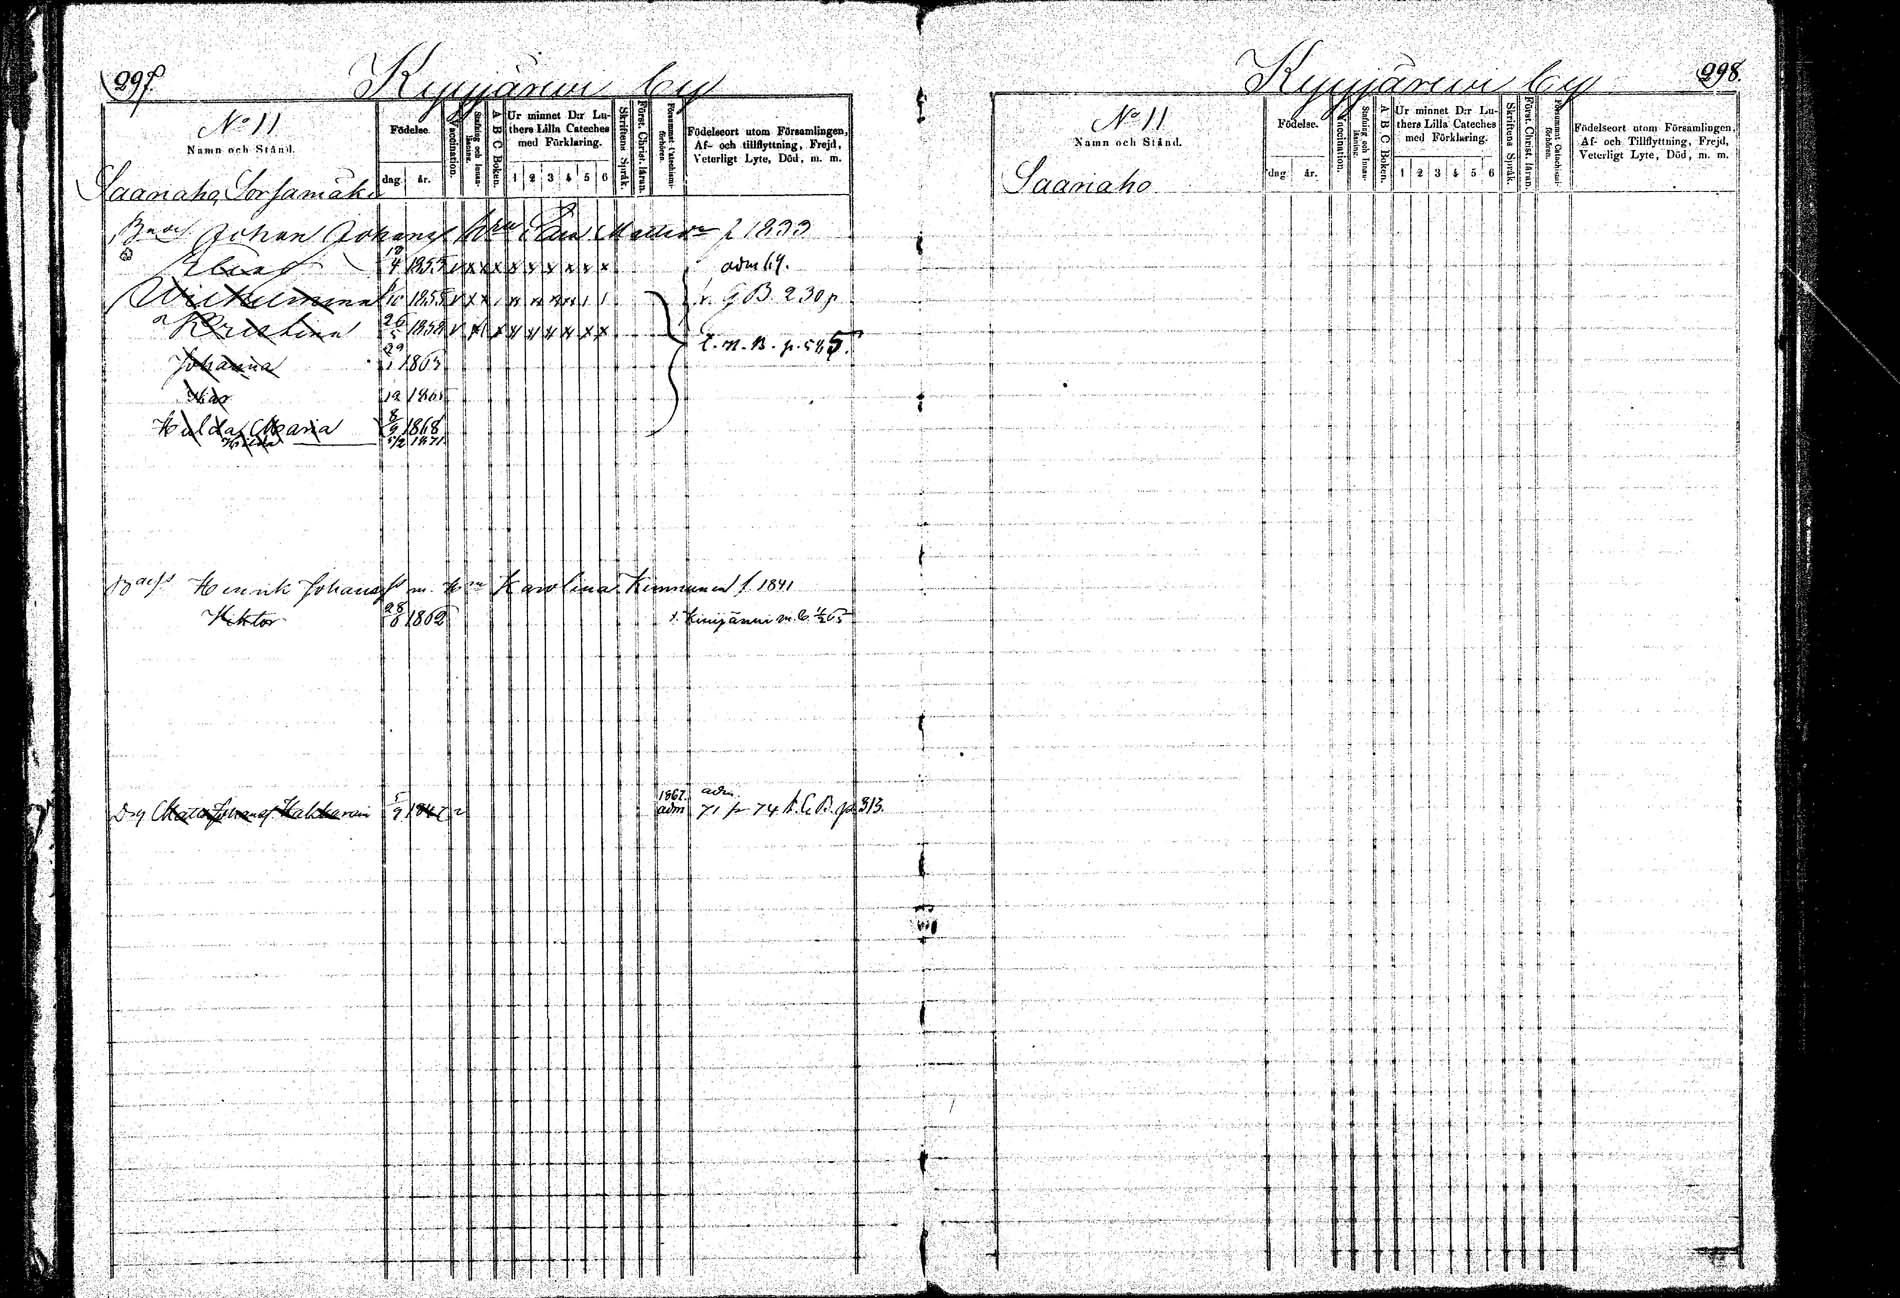 297.
Kyyjärwi by
No 11
Namn och Stånd.
Födelse.
dag
år.
Vaccination.
Stafning och Innanläsning.
A B C Boken.
Ur minnet D:r Luthers Lilla Cateches med Förklaring.
1 2 3 4 5 6
Skriftens Språk.
Först. Christ. läran.
Försummat Catechismiförhören.
Födelseort utom Församlingen,
Af- och tillflyttning, Frejd,
Veterligt Lyte, Död, m. m.
Saariaho, Sorsamäki
Johan Johans Mattsdr f 1833
Elias 4 1853 v x x x x x x x x x adm 69.
Wilhelmina 10 1855 G B. 230 p
Kristina 26/5 1858 v x x x x x x x x
Johanna 29/1 1863
12 1865
Hulda Maria 8/9 1868
5/2 1871
Henrik Johans m. Karolina Kinnunen f 1841
Viktor 28/8 1862 Kivijärvi m. b. 65
Drg Johans 5/9 1847 v 1867. adm adm. 71 p 74 K. B. p. 313.
298.
Kyyjärwi by
No 11
Namn och Stånd.
Födelse.
dag
år.
Vaccination.
Stafning och Innanläsning.
A B C Boken.
Ur minnet D:r Luthers Lilla Cateches med Förklaring.
1 2 3 4 5 6
Skriftens Språk.
Först. Christ. läran.
Försummat Catechismiförhören.
Födelseort utom Församlingen,
Af- och Tillflyttning, Frejd,
Veterligt Lyte, Död, m. m.
Saariaho